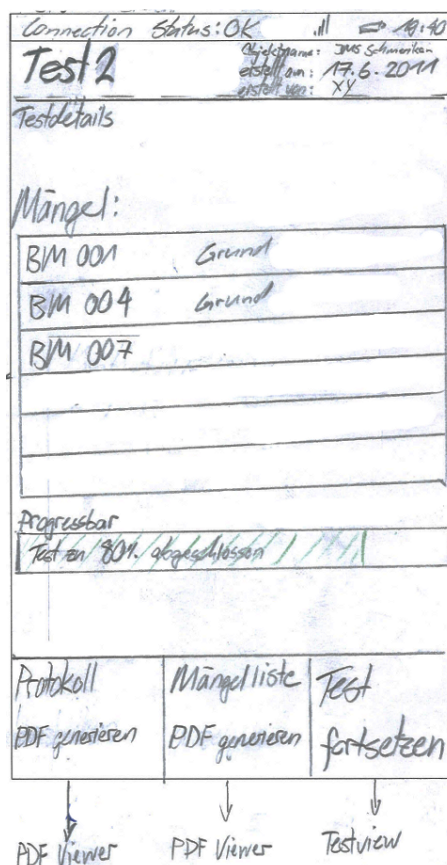 Connection Status: OK 19:40
Test 2
Objektname: BMS Schmerikon
erstellt am: 17.6.2011
erstellt von: XY
Testdetails
Mängel:
BM 001 Grund
BM 004 Grund
BM 007
Progressbar
Test zu 80% abgeschlossen
Protokoll
PDF generieren
Mängelliste
PDF generieren
Test
fortsetzen
PDF Viewer PDF Viewer Testview